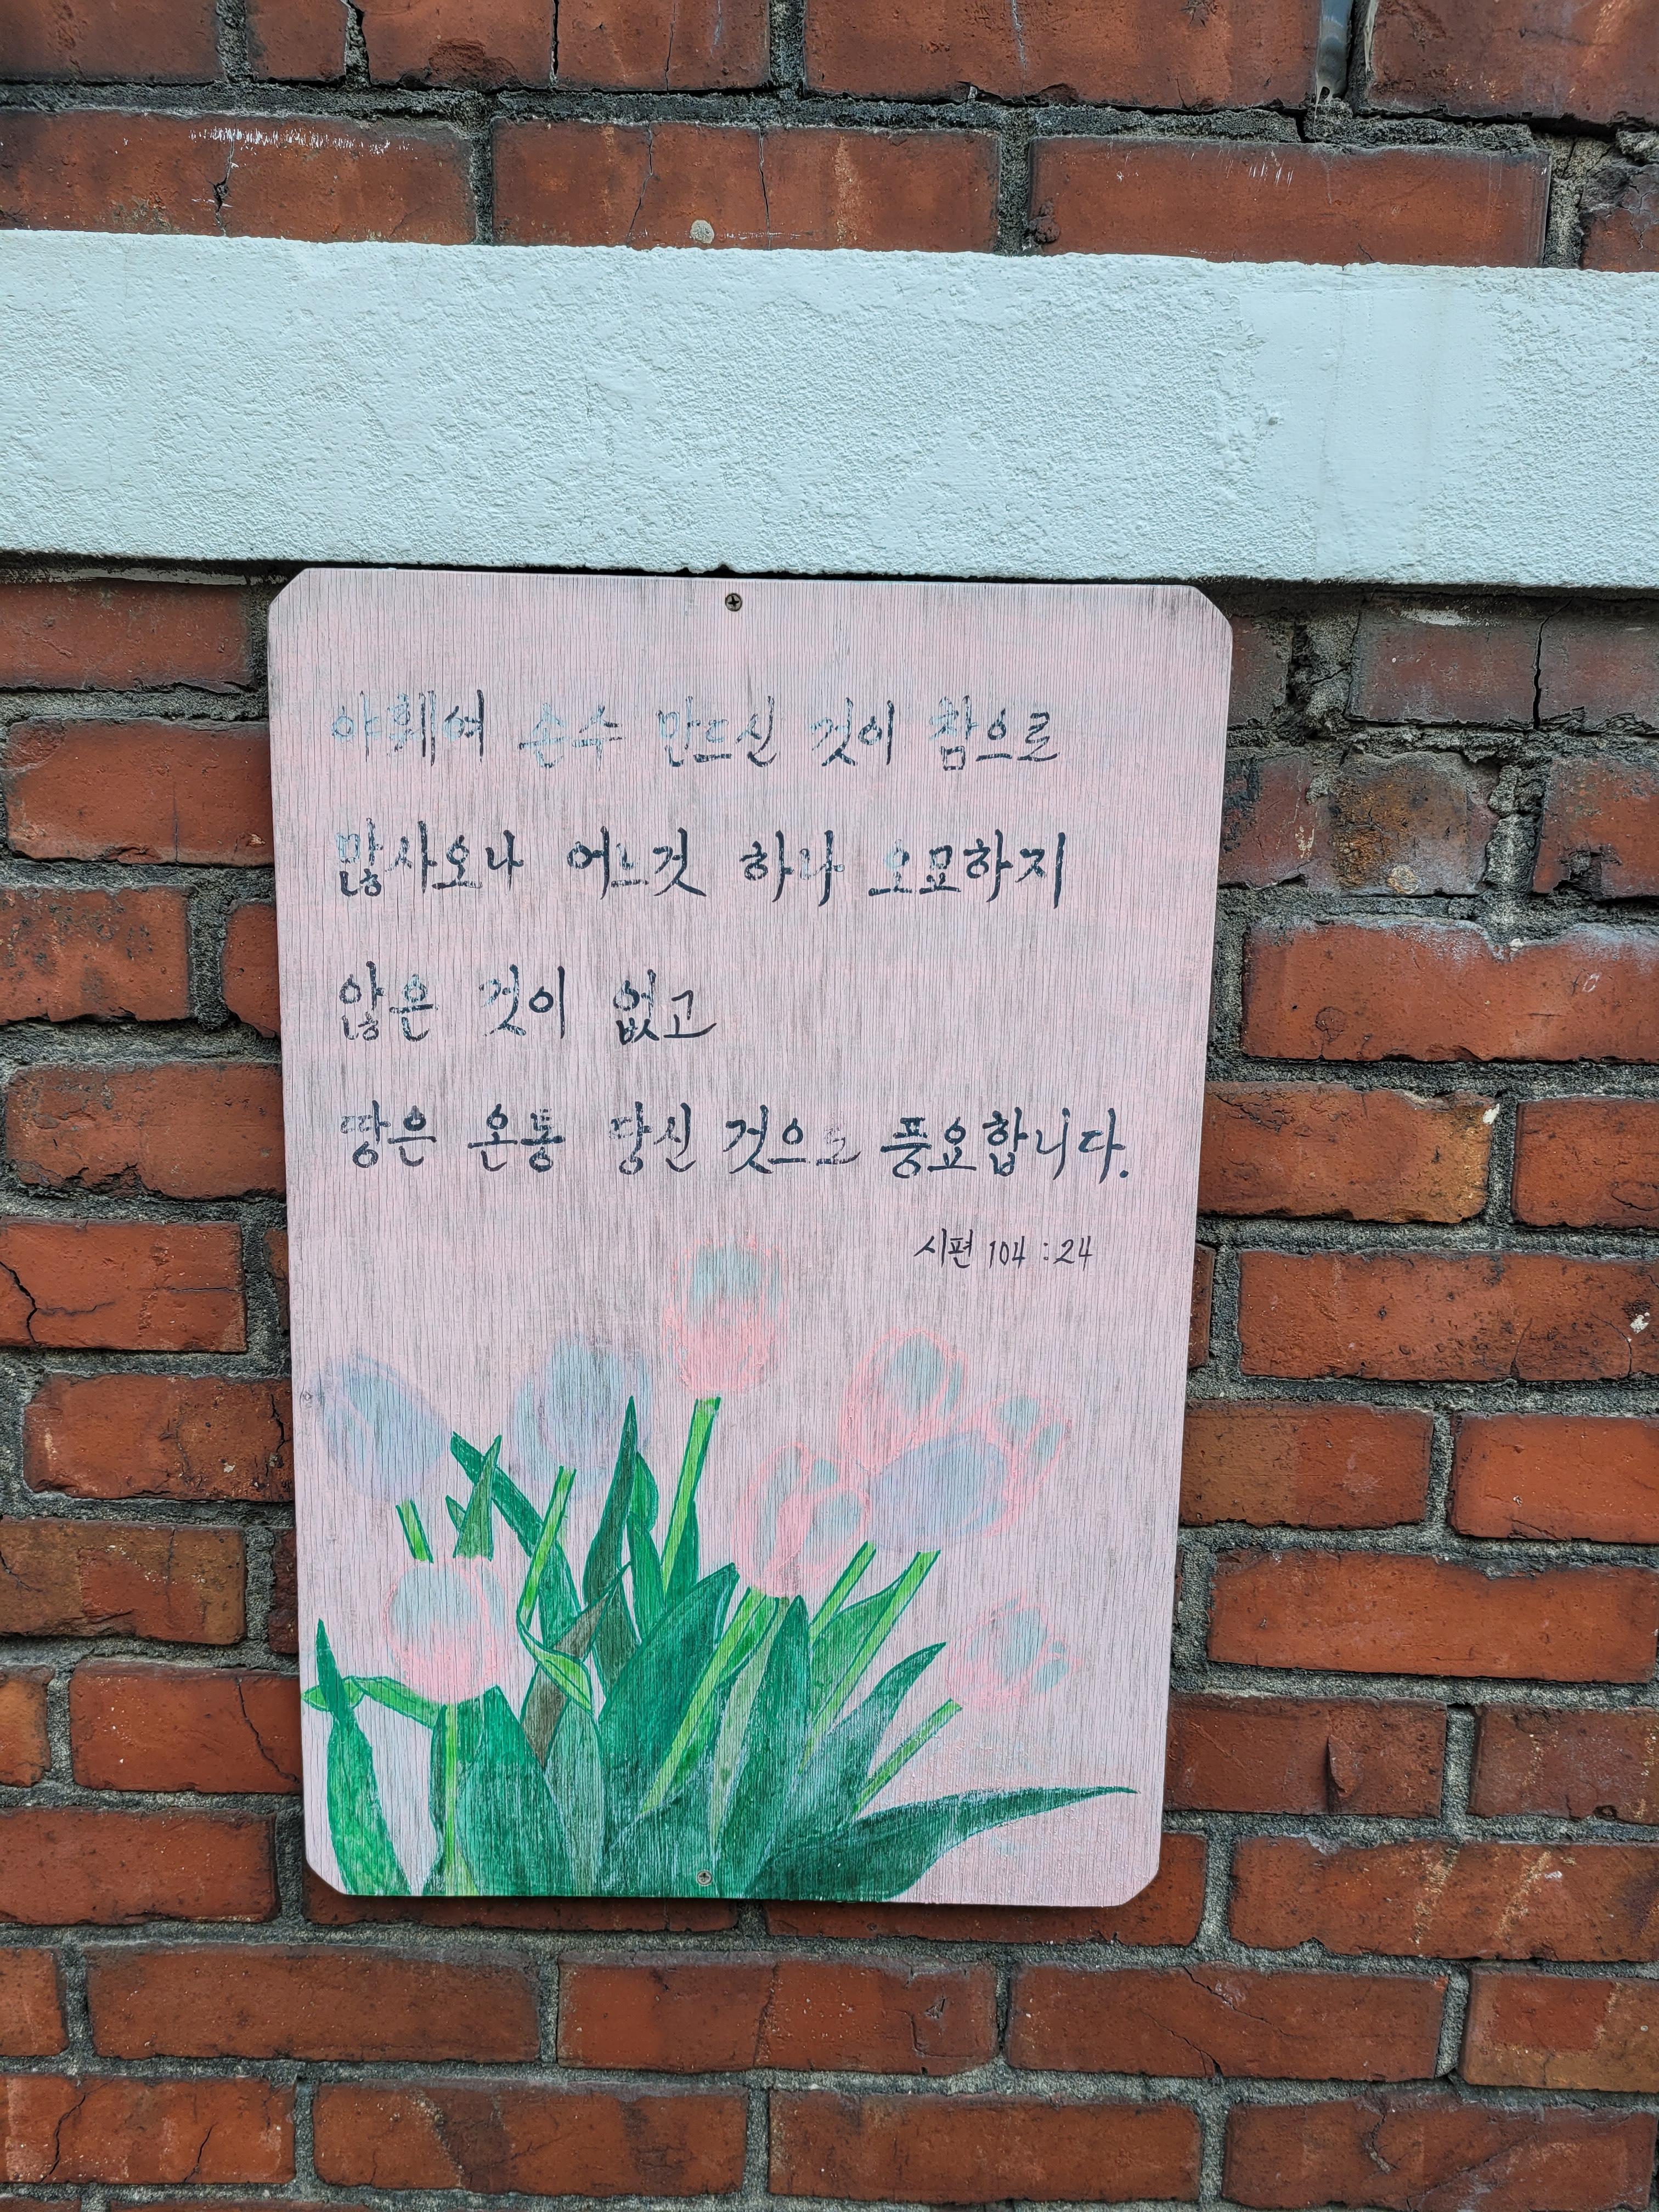 야훼여 손수 만드신 것이 참으로
많사오나 어느것 하나 오묘하지
않은 것이 없고
땅은 온통 당신 것으로 풍요합니다.
시편 104 : 24